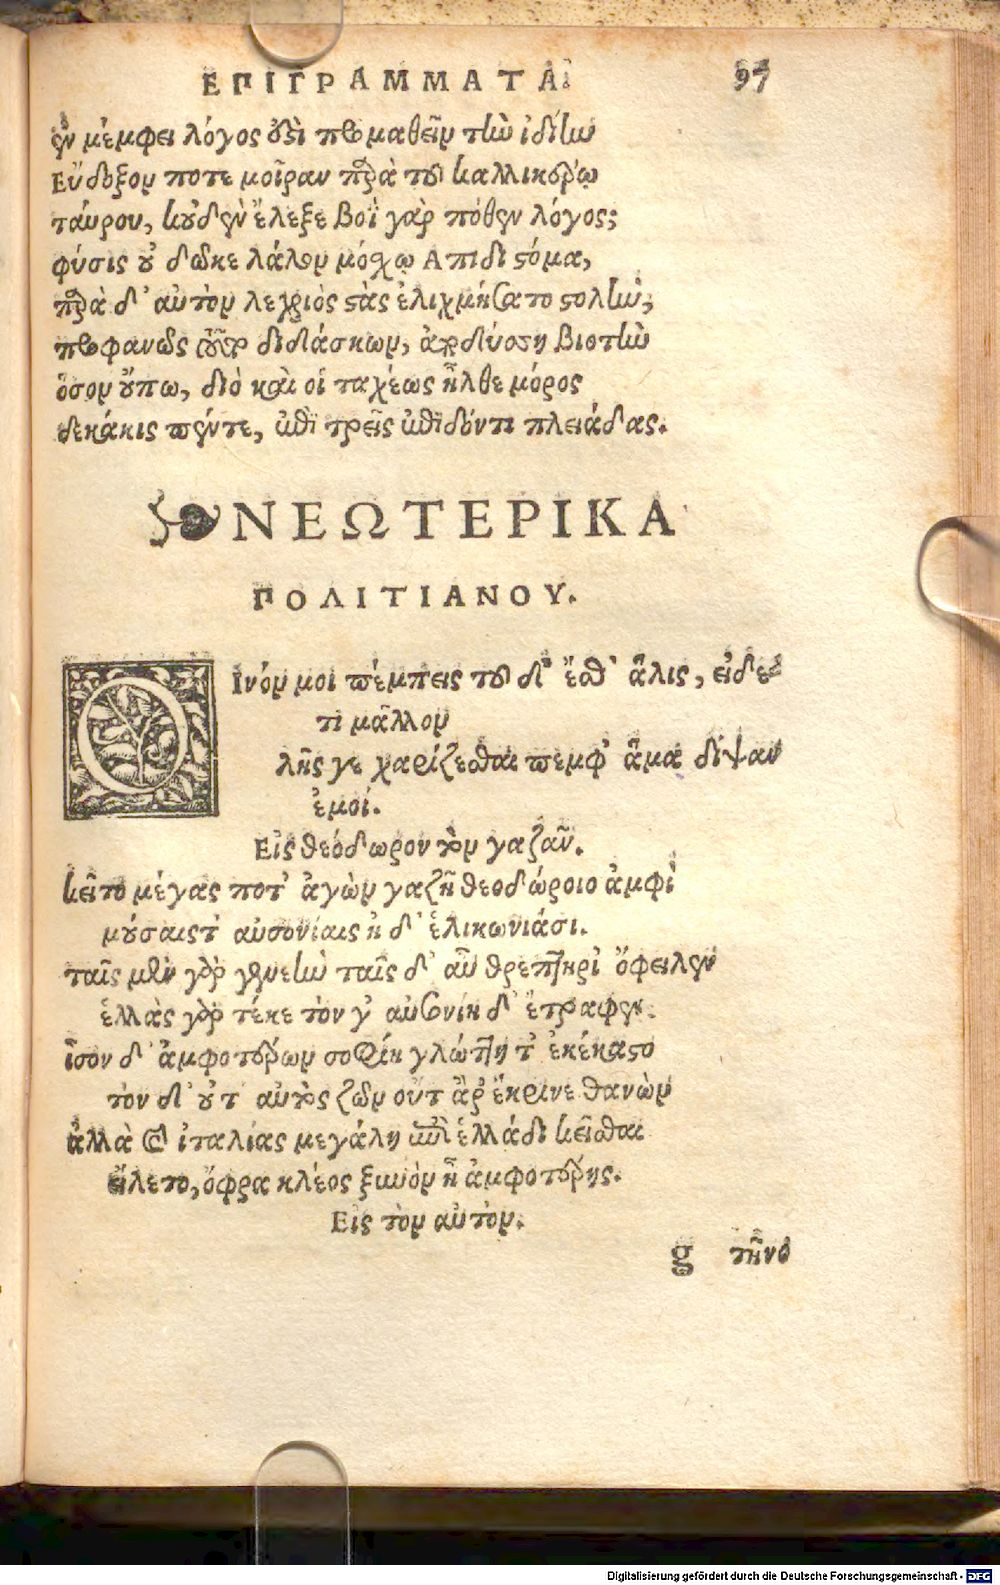 ΕΠΙΓΡΑΜΜΑΤΑ 97
ἐν μέμφει λόγος ἐςὶ προμαθεῖν τὼ ἰδίων
Εὔδοξον ποτε μοῖραν παρὰ τοῦ καλλικέρω
ταύρου, κοὐδὲν ἔλεξε βοΐ γὰρ πόθεν λόγος;
φύσις οὐ δῶκε λάλον μόχῳ Απιδι ςόμα,
παρὰ δ' αὐτὸν λεχριὸς ςὰς ἐλιχμήσατο ςολὼ,
προφανῶς τοῦτο διδάσκων, ἀποδύσῃ βιοτὼ
ὅσον οὔπω, διὸ καὶ οἱ ταχέως ἦλθε μόρος
δεκάκις πέντε, ἐπὶ τρεῖς ἐπιδόντι πλειάδας.
ΝΕΩΤΕΡΙΚΑ
ΠΟΛΙΤΙΑΝΟΥ.
Οἶνόν μοι πέμπεις τοῦ δ' ἔσθ' ἅλις, εἰδέ
τι μᾶλλον
λῇς γε χαρίζεσθαι πεμφ' ἅμα δίψαν
ἐμοί.
Εἰς θεόδωρον τὸν γαζαῦ.
κεῖτο μέγας ποτ' ἀγὼν γαζῆ θεοδώροιο ἀμφὶ
μούσαις τ' αὐσονίαις ἠ δ' ἑλικωνιάσι.
ταῖς μὲν γὰρ γενεὼ ταῖς δ' αὖ θρεπτῆρι' ὄφειλεν
ἑλλὰς γὰρ τέκε τὸν γ' αὐσονίη δ' ἔτραφεν.
ἶσον δ' ἀμφοτέρων σοφίῃ γλώττῃ τ' ἐκέκαςο
τὸν δ' οὔτ' αὐτὸς ζῶν οὔτ' ἂρ' ἔκρινε θανὼν
ἀλλὰ καὶ ἰταλίας μεγάλῃ ἐπὶ ἑλλάδι κεῖσθαι
εἵλετο, ὄφρα κλέος ξυνὸν ᾖ ἀμφοτέρῃς.
Εἰς τὸν αὐτὸν.
g τῆνο
Digitalisierung gefördert durch die Deutsche Forschungsgemeinschaft - DFG